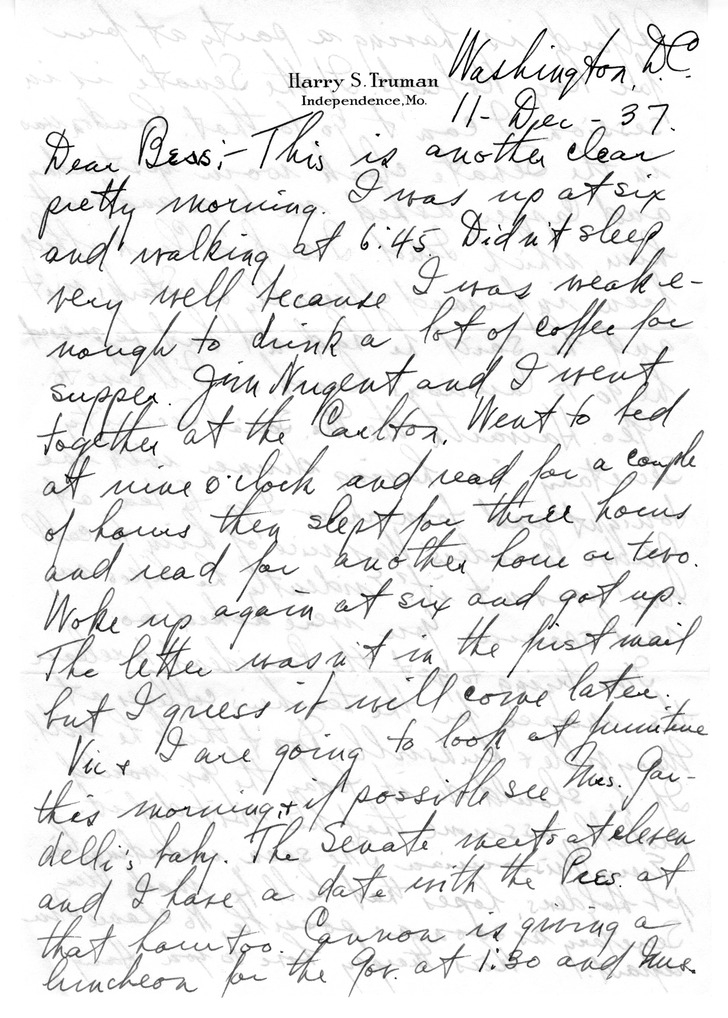 Harry S. Truman
Independence, Mo.
Washington, D.C.
11- Dec - 37.
Dear Bess;- This is another clear
pretty morning. I was up at six
and walking at 6:45. Didn't sleep
very well because I was weak e-
nough to drink a lot of coffee for
supper. Jim Nugent and I went
together at the Carlton. Went to bed
at nine o'clock and read for a couple
of hours then slept for three hours
and read for another hour or two.
Woke up again at six and got up.
The letter wasn't in the first mail
but I guess it will come later.
Vic & I are going to look at furniture
this morning, & if possible see Mrs. Gar-
delli's baby. The Senate meets at eleven
and I have a date with the Pres. at
that hour too. Cannon is giving a
luncheon for the Gov. at 1:30 and Mrs.